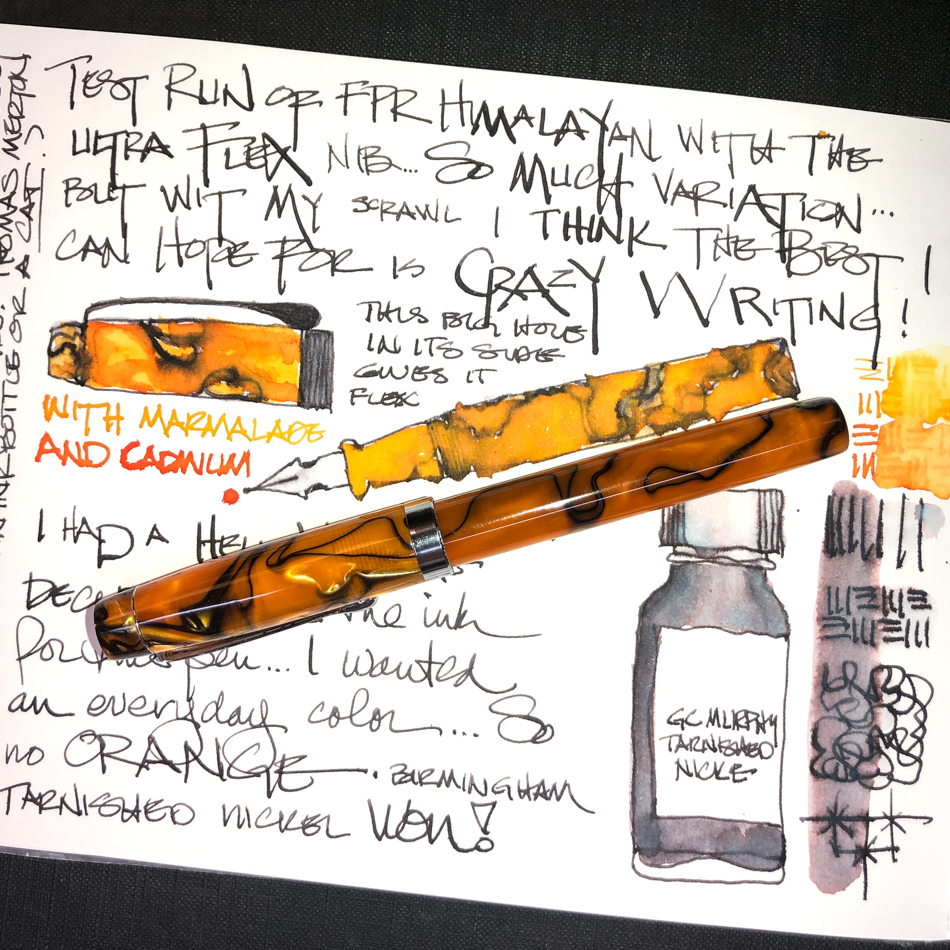 TEST RUN OF FPR HIMALAYAN WITH THE
ULTRA FLEX NIB... SO MUCH VARIATION...
BUT WIT MY SCRAWL I THINK THE BEST I
CAN HOPE FOR IS CRAZY WRITING!
THIS BIG HOLE
IN ITS SIDE
GIVES IT
FLEX
WITH MARMALADE
AND CADMIUM
I HAD A
the ink
For pen... I wanted
an everyday color... So
no ORANGE. BIRMINGHAM
TARNISHED NICKEL WON!
GC MURPHY
TARNISHED
NICKE
THOMAS MERTON
INK BOTTLE OR A CAP!